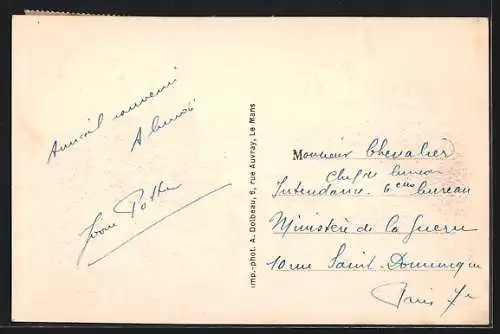 Amical souvenir
A bientôt
Imp.-phot. A. Dolbeau, 5, rue Auvray, Le Mans
Monsieur Chevalier
Chef de bureau
Intendance 6eme bureau
Ministère de la Guerre
10 rue Saint-Dominique
Paris 7e